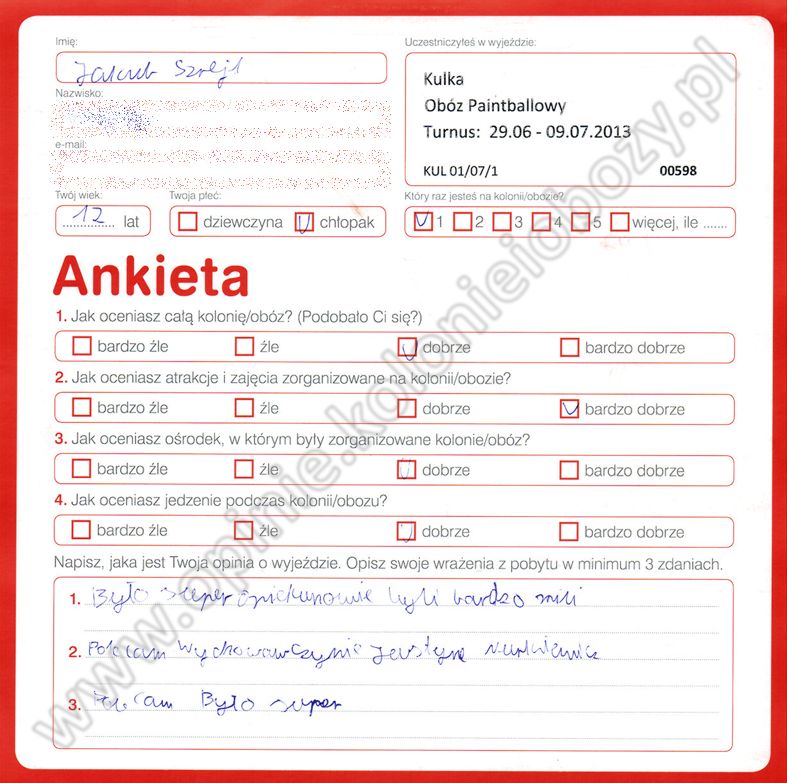 Imię:
Jakub
Nazwisko:
e-mail:
Uczestniczyłeś w wyjeździe:
Kulka
Obóz Paintballowy
Turnus: 29.06 - 09.07.2013
KUL 01/07/1 00598
Twój wiek:
12 lat
Twoja płeć:
dziewczyna chłopak
Który raz jesteś na kolonii/obozie?
1 2 3 4 5 więcej, ile .......
Ankieta
1. Jak oceniasz całą kolonię/obóz? (Podobało Ci się?)
bardzo źle źle dobrze bardzo dobrze
2. Jak oceniasz atrakcje i zajęcia zorganizowane na kolonii/obozie?
bardzo źle źle dobrze bardzo dobrze
3. Jak oceniasz ośrodek, w którym były zorganizowane kolonie/obóz?
bardzo źle źle dobrze bardzo dobrze
4. Jak oceniasz jedzenie podczas kolonii/obozu?
bardzo źle źle dobrze bardzo dobrze
Napisz, jaka jest Twoja opinia o wyjeździe. Opisz swoje wrażenia z pobytu w minimum 3 zdaniach.
1. Było super opiekunowie byli bardzo mili
2. Polecam wychowawczynie Justynę
3. Polecam Było super
www.opinie.kolonieiobozy.pl